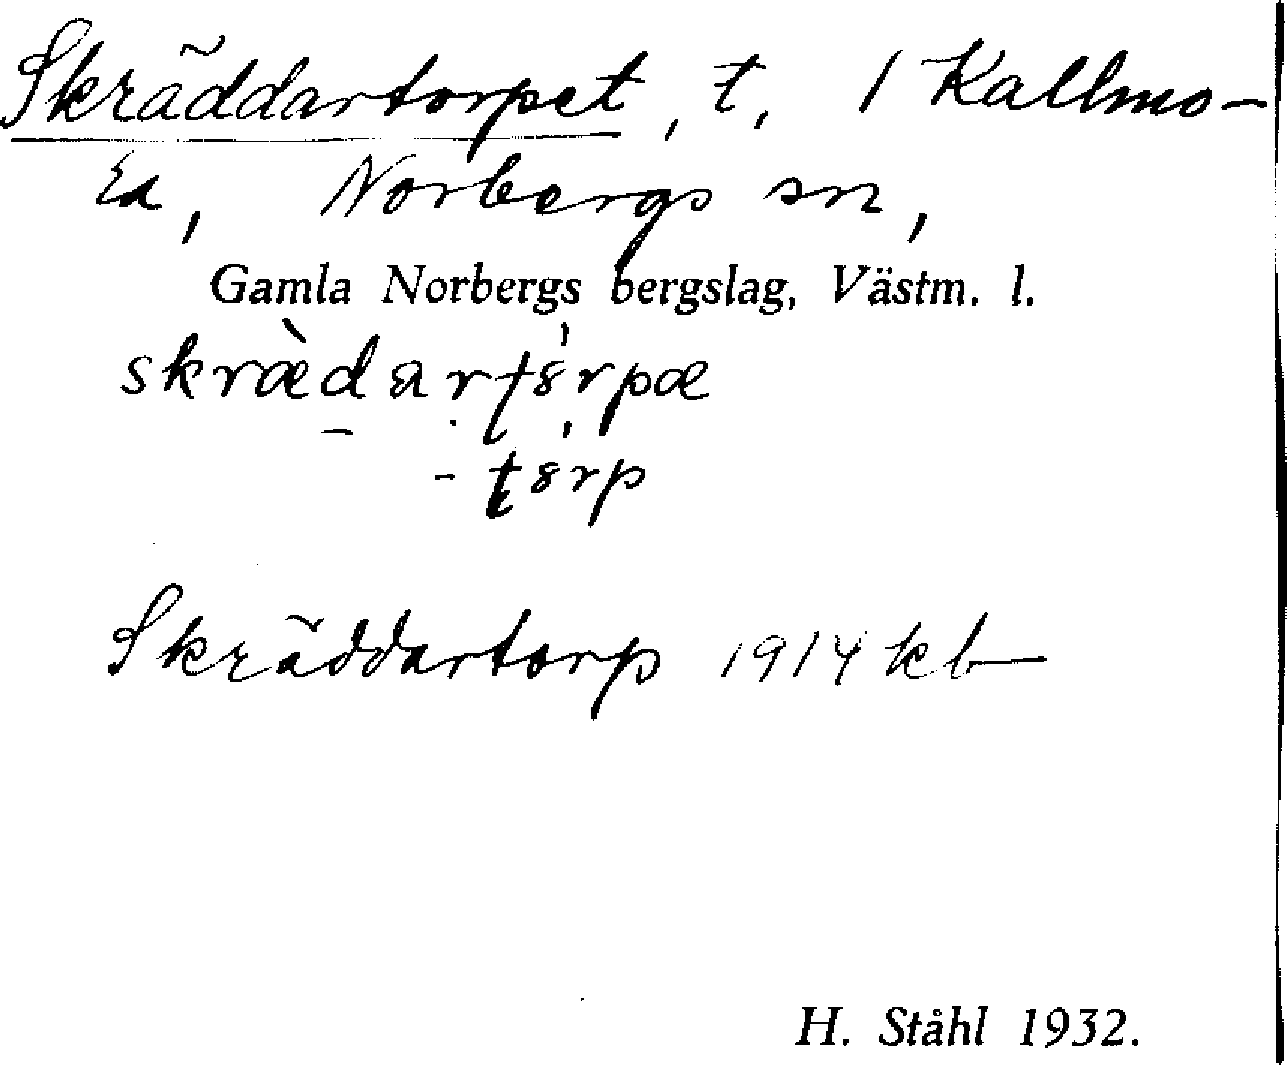 Skräddartorpet, t. / Kallmo-
ra, Norbergs sn,
Gamla Norbergs bergslag, Västm. l.
skrædartȣrpæ
- tȣrp
Skräddartorp 1914 kb
H. Ståhl 1932.